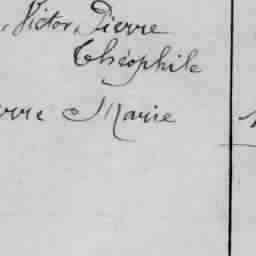 , Victor, Pierre
Théophile
erre Marie